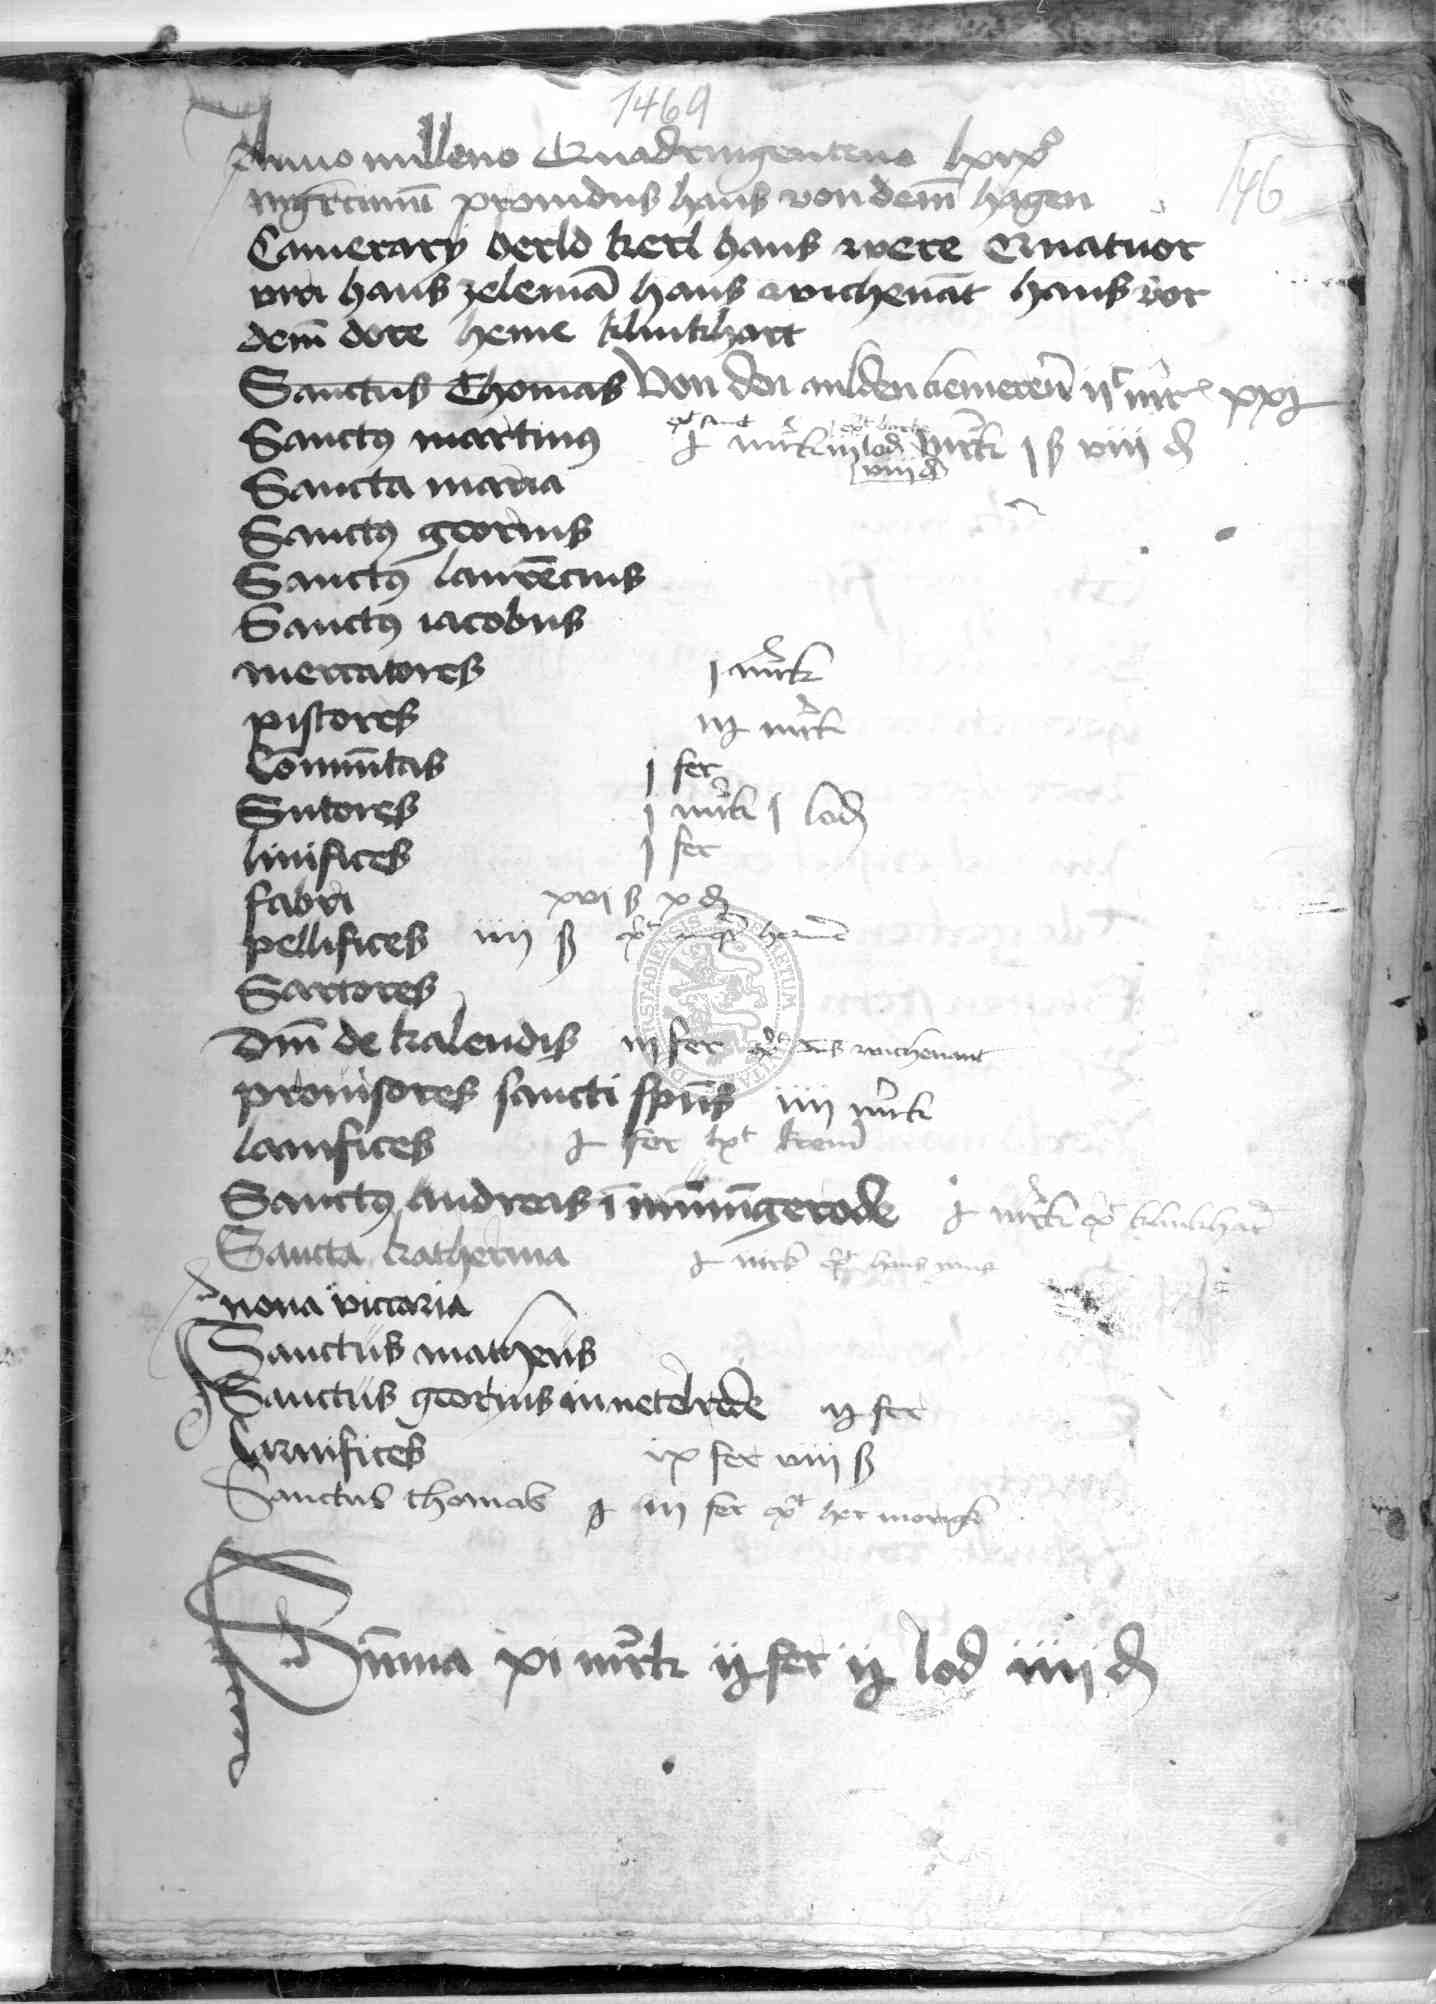 1469
Anno milleno Quadringenteno lxix°
mgr̄ciuiū prouidus hans von dem̄ hagen
146
Camerarij berld kerl hans were Quatuor
viri hans zelemā hans wichenāt hans vor
dem̄ dore heine klinkhart
Sanctus Thomas Von den alden kemerern̄ ij mrc xxj
Sanctꝯ martinꝯ j mrk iij lod mrk j ß viij ₰
viiij ₰
Sancta maria
Sanctꝯ georius
Sanctꝯ laurēcius
Sanctꝯ iacobus
mercatores j mrk
pistores iij mrk
Com̄untas j fer
Sutores j mrk j lod
linifices j fer
fabri xvi ß x ₰
pellifices iiij ß
Sartores
Dn̄i de kalendis iij fer dns wichenant
prouisores sancti sp̄us iiij mrk
lanifices j fer
Sanctꝯ andreas ī mīmīgerode j mrk klinkhar̄
Sancta katherina j mrk hans
noua viccaria
Sanctus matheus
Sanctus georius in uetelrode ij fer
Carnifices ix fer viiij ß
Sanctus thomas j iij fer her
Sum̄a xi mrk ij fer ij lod iiij ₰